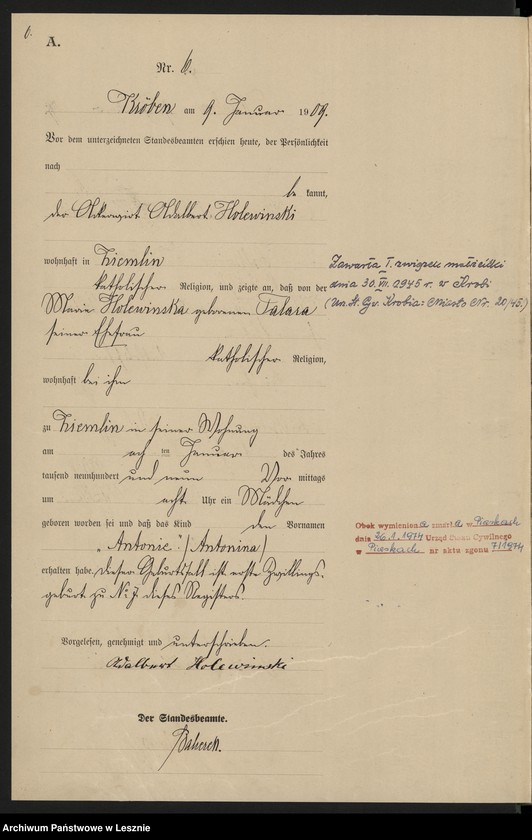 6.
A.
Nr. 6.
Kröben am 9. Januar 1909.
Vor dem unterzeichneten Standesbeamten erschien heute, der Persönlichkeit
nach
be kannt,
der Ackerwirt Adalbert Holewinski
wohnhaft in Ziemlin
katholischer Religion, und zeigte an, daß von der
Marie Holewinska geborenen Talara
seiner Ehefrau
katholischer Religion,
wohnhaft bei ihm
zu Ziemlin in seiner Wohnung
am acht ten Januar des Jahres
tausend neunhundert und neun Vor mittags
um acht Uhr ein Mädchen
geboren worden sei und daß das Kind den Vornamen
„Antonie" (Antonina)
erhalten habe. Dieser Geburtsfall ist erste Zwillings-
geburt zu No 7 dieses Registers.
Vorgelesen, genehmigt und unterschrieben.
Adalbert Holewinski
Der Standesbeamte.
Zawarła I. związek małżeński
dnia 30.VII. 1945 r. w Krobi
(Urz. St. Cyw. Krobia-Miasto Nr. 20/45.)
Obok wymieniona zmarła w Piaskach
dnia 26.1.1974 Urząd Stanu Cywilnego
w Piaskach nr aktu zgonu 7/1974
Archiwum Państwowe w Lesznie